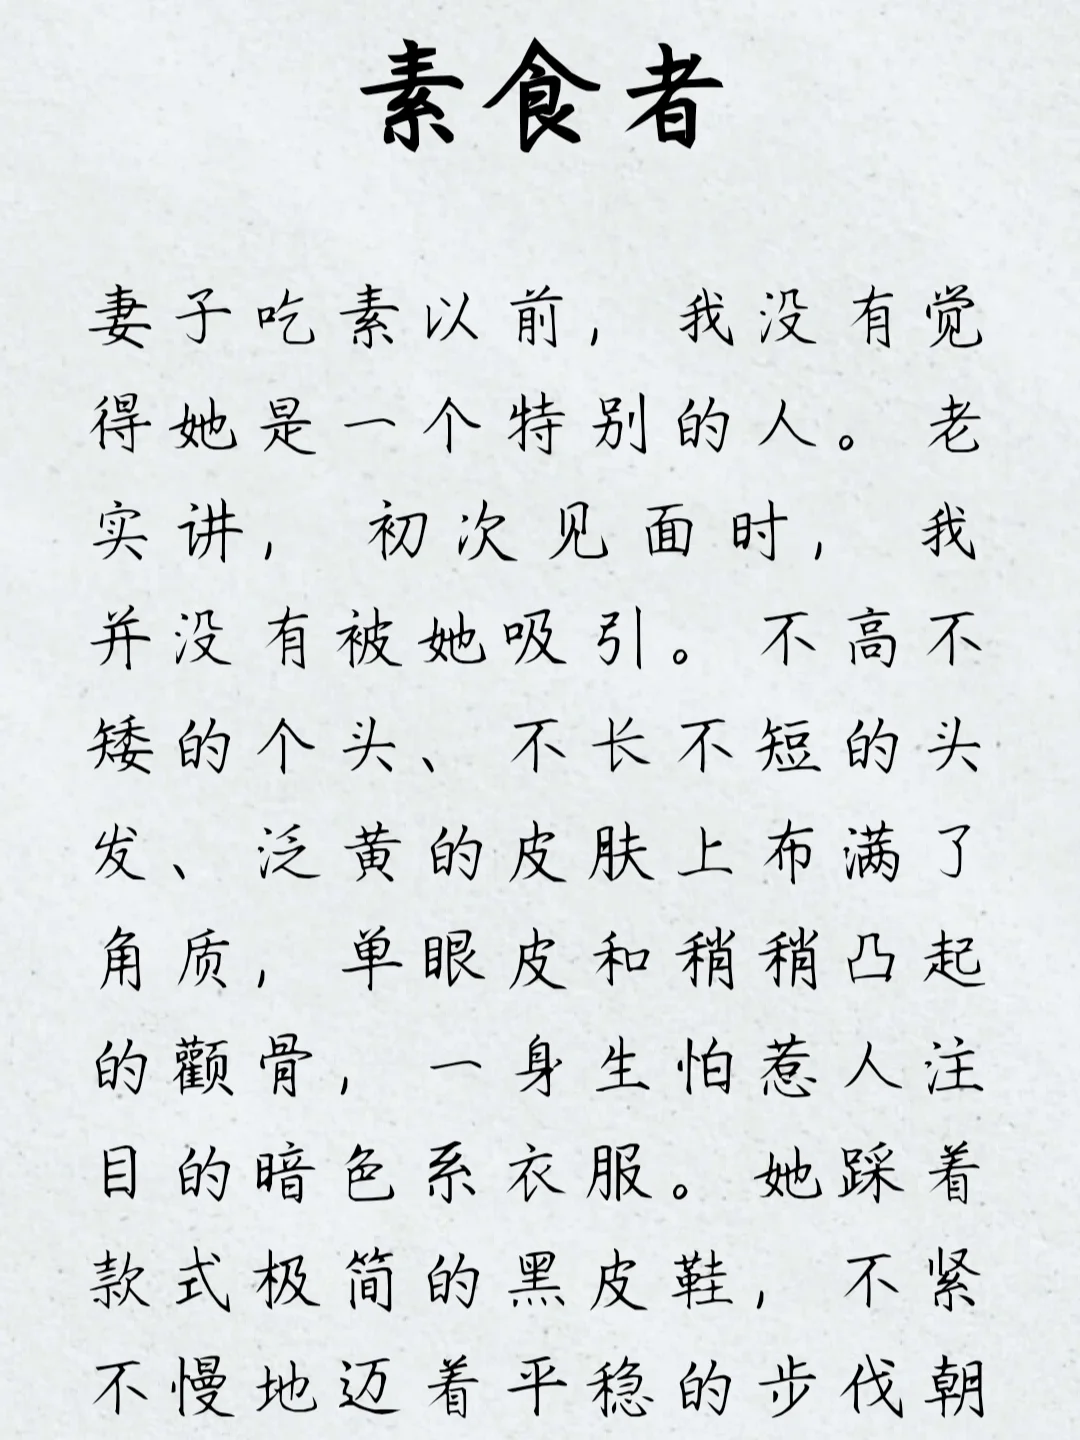 素食者
妻子吃素以前，我没有觉
得她是一个特别的人。老
实讲，初次见面时，我
并没有被她吸引。不高不
矮的个头、不长不短的头
发、泛黄的皮肤上布满了
角质，单眼皮和稍稍凸起
的颧骨，一身生怕惹人注
目的暗色系衣服。她踩着
款式极简的黑皮鞋，不紧
不慢地迈着平稳的步伐朝